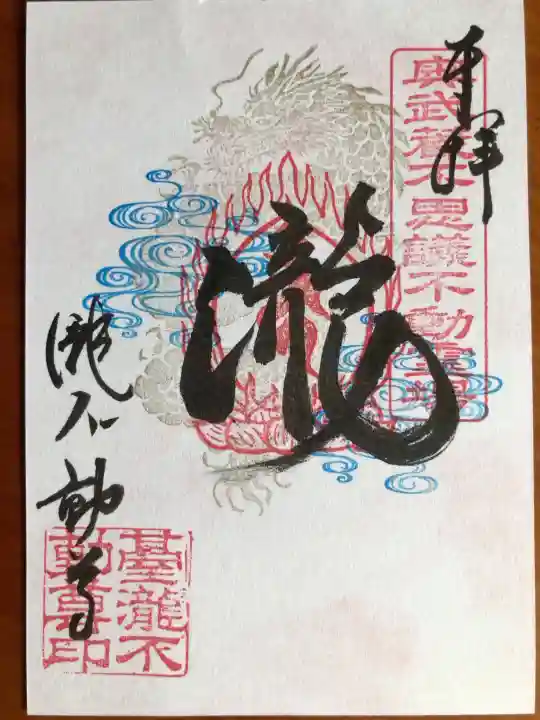 奉拝
奥武蔵不思議不動霊場
瀧
瀧不動尊
基瀧不
動尊印